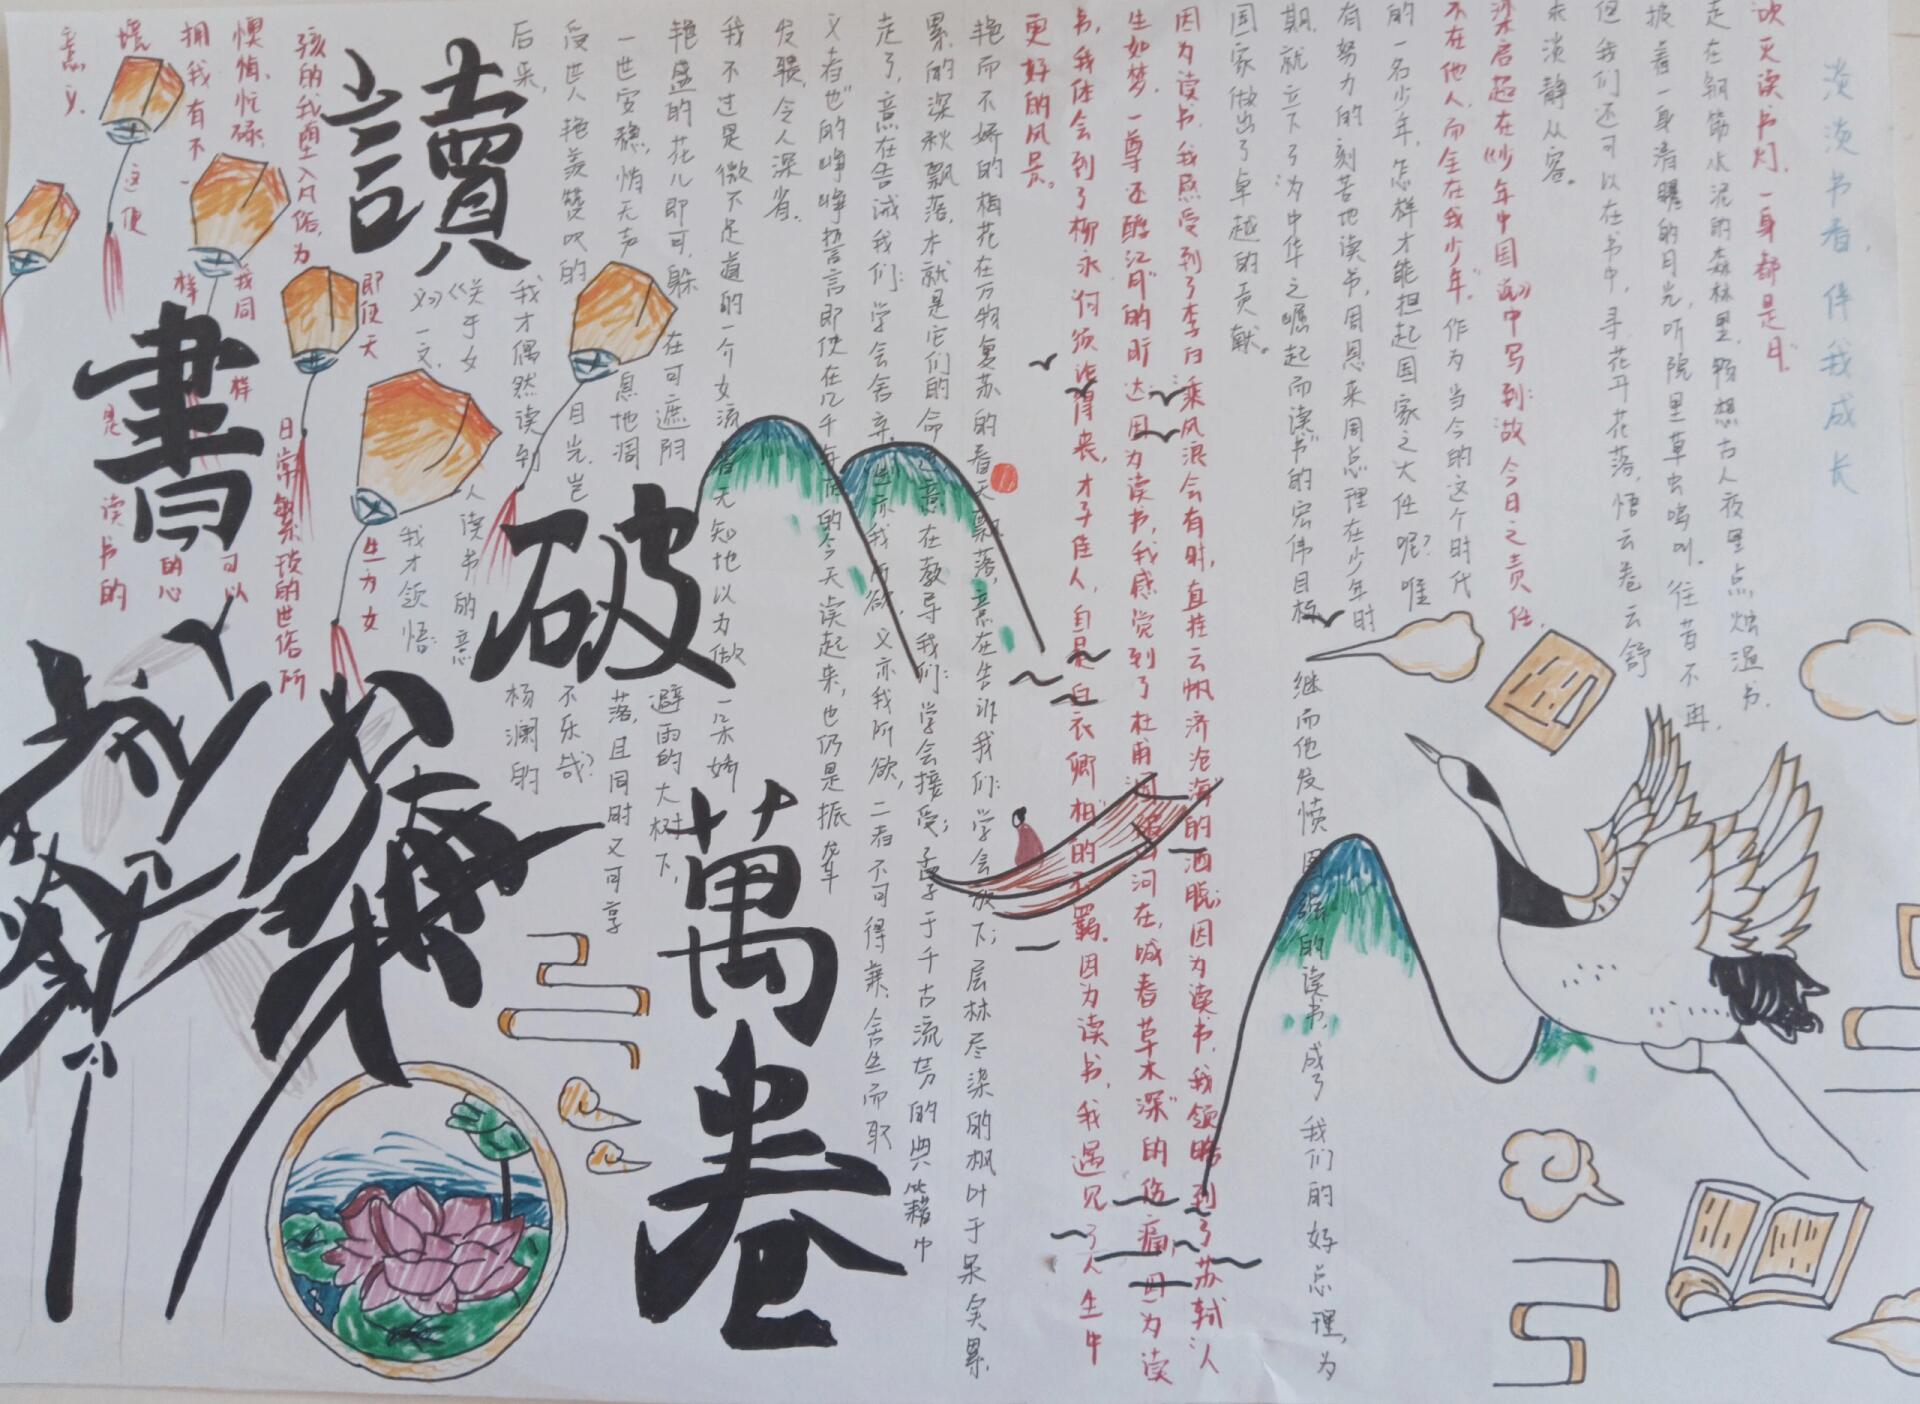 淡淡书香，伴我成长
吹灭读书灯，一身都是月。
走在钢筋水泥的森林里，畅想古人夜里点烛温书，
披着一身清曜的月光，听院里草虫鸣叫。往昔不再，
但我们还可以在书中，寻花开花落，悟云卷云舒
求淡静从容。
梁启超在《少年中国说》中写到：“故今日之责任，
不在他人，而全在我少年”。作为当今的这个时代
的一名少年，怎样才能担起国家之大任呢？唯
有努力的刻苦地读书，周恩来周总理在少年时
期，就立下了“为中华之崛起而读书”的宏伟目标，继而他发愤图强的读书，成了我们的好总理，为
国家做出了卓越的贡献。
因为读书，我感受到了李白“乘风破浪会有时，直挂云帆济沧海”的洒脱；因为读书，我领略到了苏轼“人
生如梦，一尊还酹江月”的旷达；因为读书，我感觉到了杜甫“国破山河在，城春草木深”的伤痛；因为读
书，我体会到了柳永“何须论得丧，才子佳人，自是白衣卿相”的不羁。因为读书，我遇见了人生中
更好的风景。
艳而不娇的梅花在万物复苏的春天飘落，意在告诉我们：学会放下；层林尽染的枫叶于果实累
累的深秋飘落，本就是它们的命运，意在教导我们：学会接受；孟子于千古流芳的典籍中
走了，意在告诫我们：学会舍弃，生亦我所欲，义亦我所欲，二者不可得兼，舍生而取
义者也”的铮铮誓言即使在几千年后的今天读起来，也仍是振聋
发聩，令人深省。
我不过是微不足道的一个女流，曾无知地以为做一朵娇
艳盛的花儿即可，躲在可遮阴避雨的大树下，
一世安稳，悄无声息地凋落，且同时又可享
受世人艳羡赞叹的目光，岂不乐哉？
后来，我才偶然读到杨澜的
《关于女人读书的意
义》一文，我才领悟：
即使天生为女
孩的我堕入凡俗，为日常繁琐的世俗所
懊恼、忙碌，我同样可以
拥我有不一样的心
境，这便是读书的
意义。
讀
書
破
萬
卷